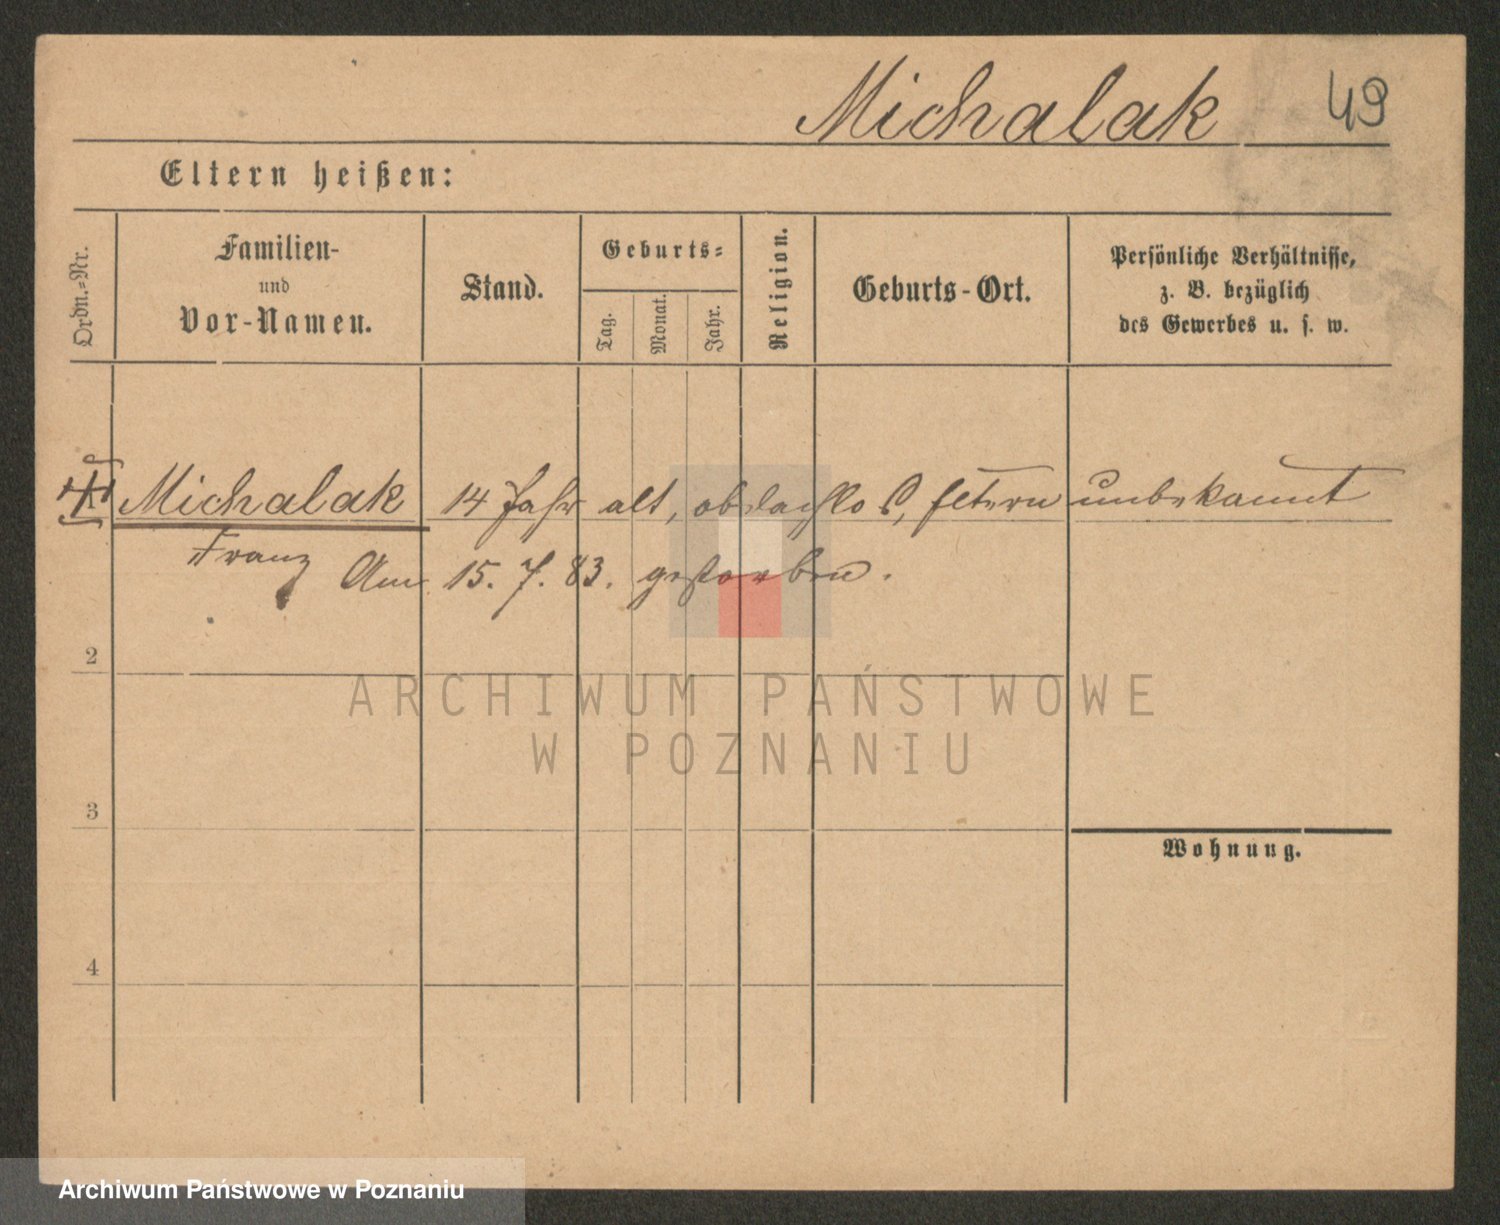 Michalak 49
Eltern heißen:
Ordn.-Nr.
Familien-
und
Vor-Namen.
Stand.
Geburts-
Tag.
Monat.
Jahr.
Religion.
Geburts-Ort.
Persönliche Verhältnisse,
z. B. bezüglich
des Gewerbes u. s. w.
Michalak 14 Jahr alt, obdachlos, Eltern unbekannt
Franz Am 15. 7. 83. gestorben.
2
ARCHIWUM PAŃSTWOWE
W POZNANIU
3
Wohnung.
4
Archiwum Państwowe w Poznaniu